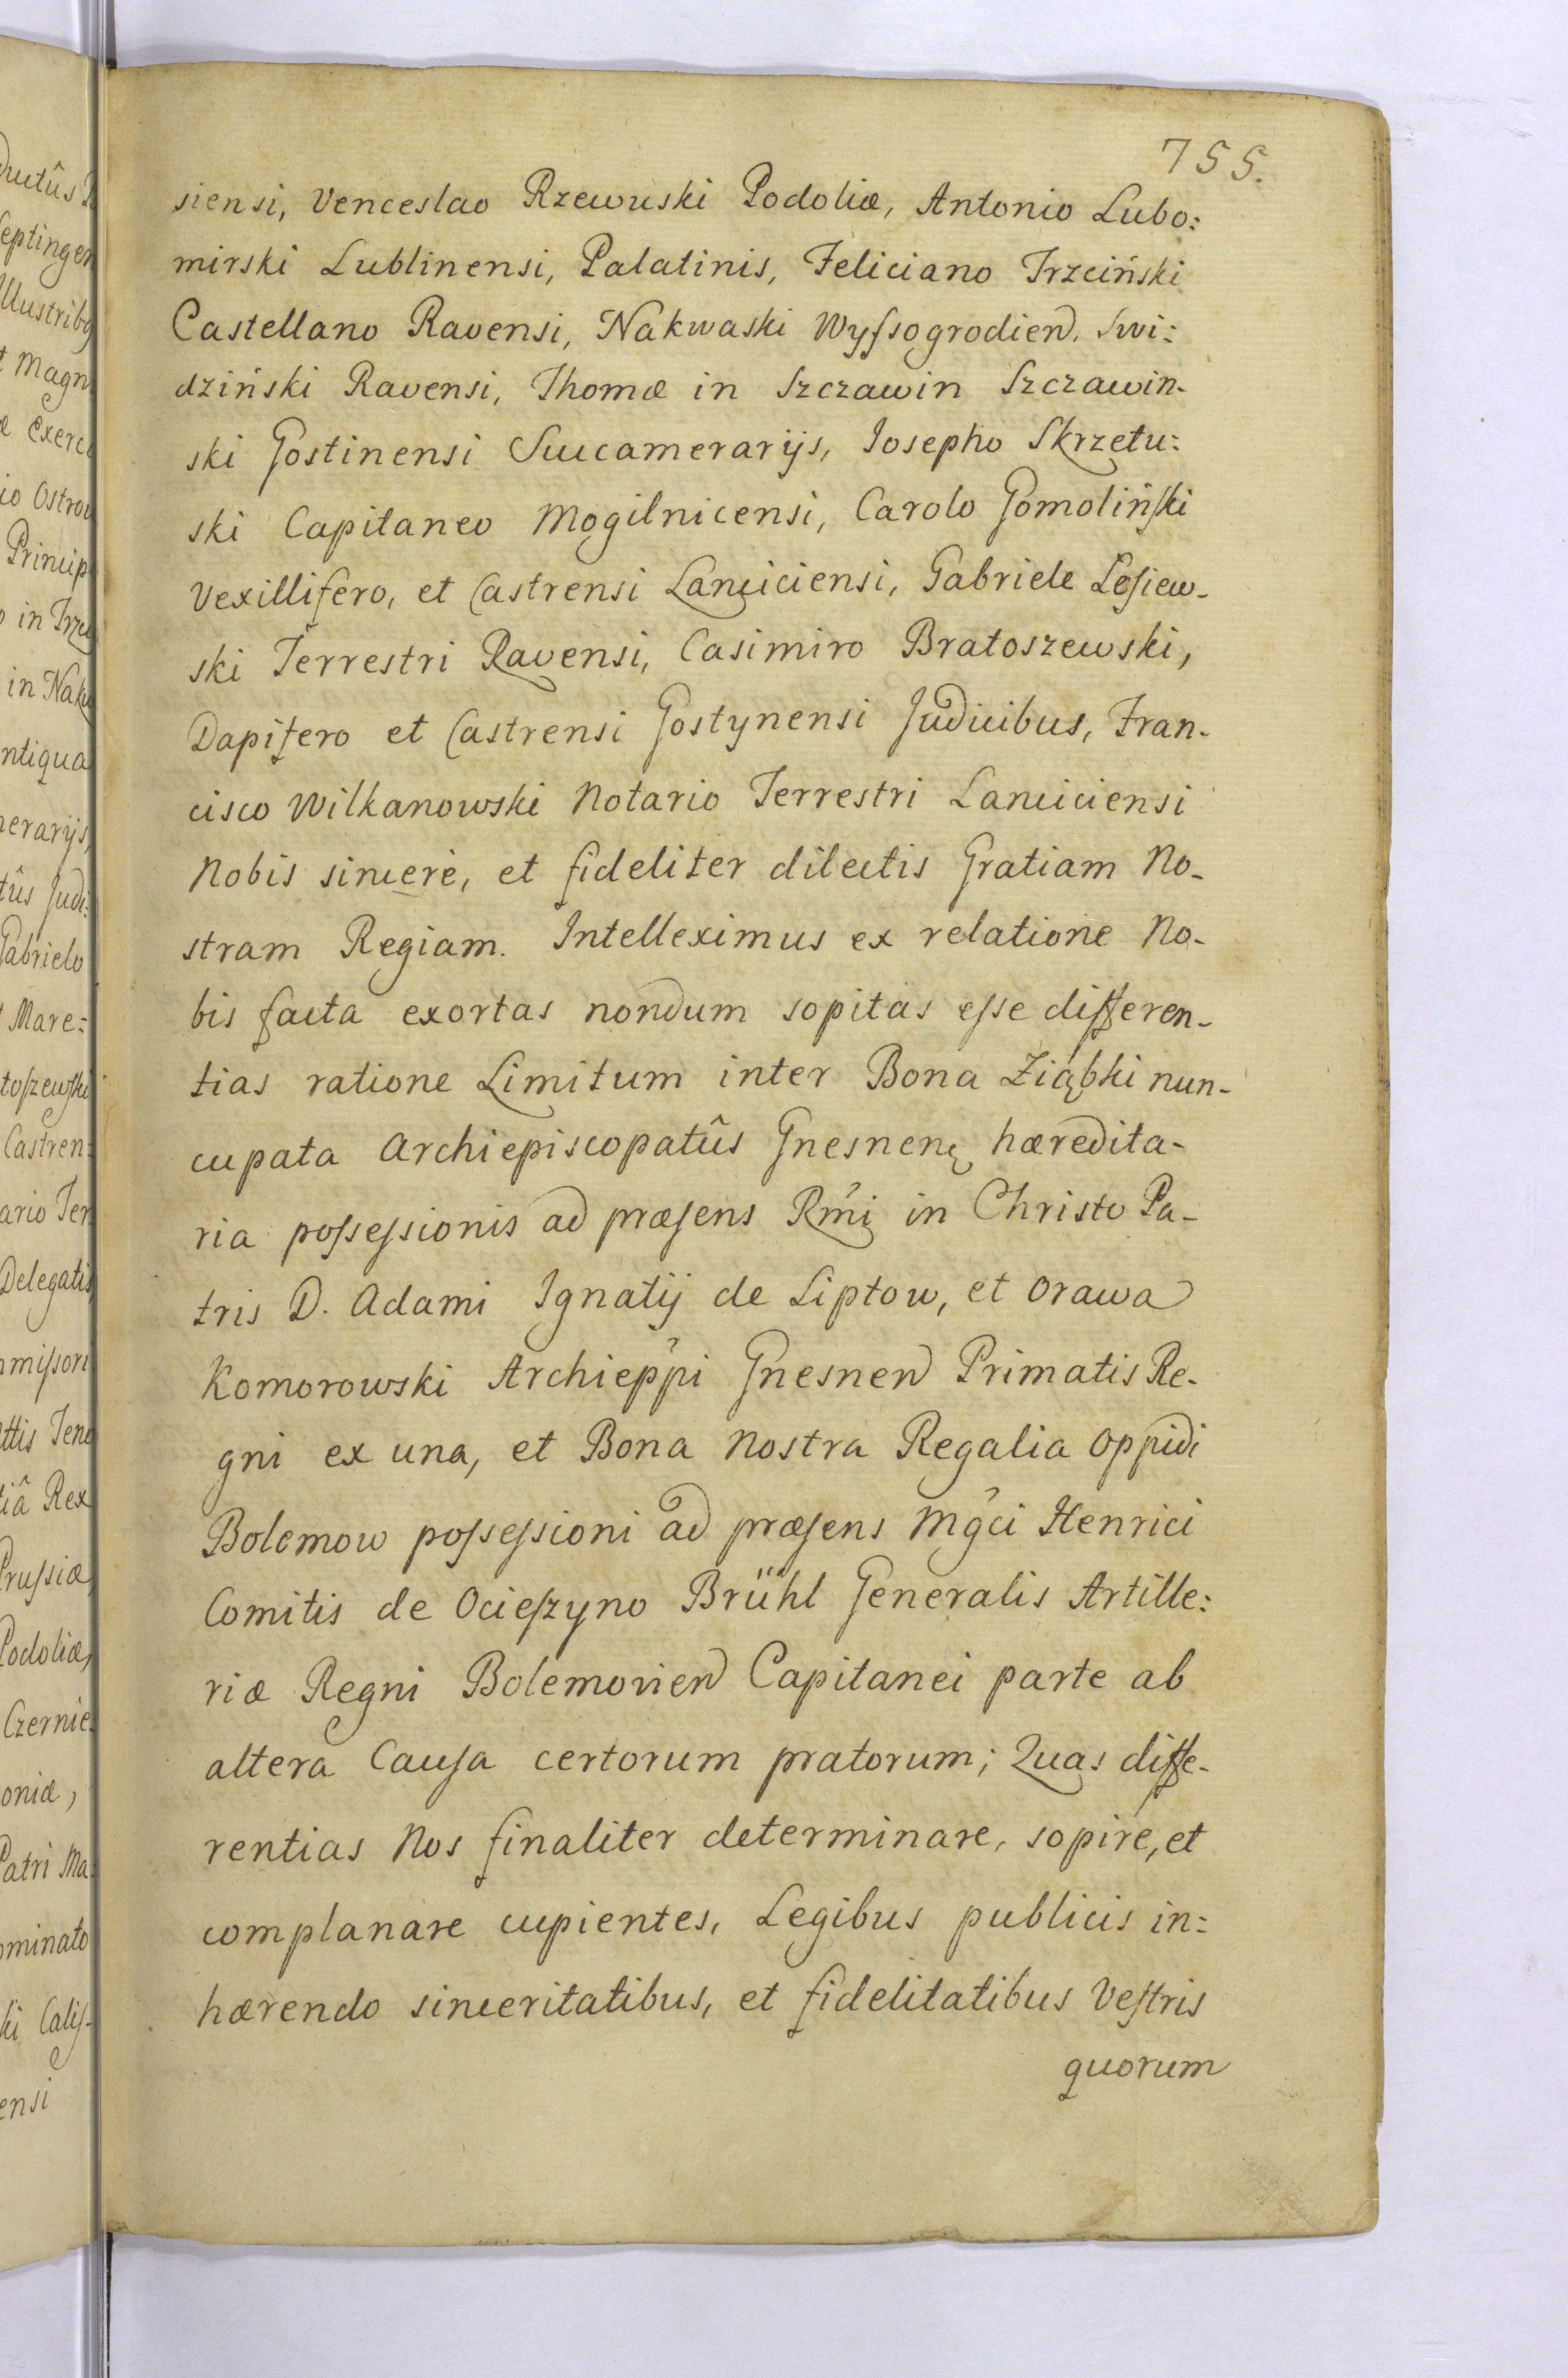 755.
siensi, Venceslao Rzewuski Podoliæ, Antonio Lubo:
mirski Lublinensi, Palatinis, Feliciano Trzciński
Castellano Ravensi, Nakwaski Wyſsogrodien̄. Swi:
dziński Ravensi, Thomæ in Szczawin Szczawin-
ski Gostinensi Succamerarijs, Iosepho Skrzetu:
ski Capitaneo Mogilnicensi, Carolo Gomolińſki
Vexillifero, et Castrensi Lanciciensi, Gabriele Leſiew-
ski Terrestri Ravensi, Casimiro Bratoszewski,
Dapifero et Castrensi Gostynensi Judicibus, Fran-
cisco Wilkanowski Notario Terrestri Lanciciensi
Nobis sincerè, et fideliter dilectis Gratiam No-
stram Regiam. Intelleximus ex relatione No-
bis facta exortas nondum sopitas eſse differen-
tias ratione Limitum inter Bona Ziąbki nun-
cupata Archiepiscopatûs Gnesnenę hæredita-
ria poſseſsionis ad præſens Rm̃i in Christo Pa-
tris D. Adami Ignatij de Liptow, et Orawa
Komorowski Archiepp̃i Gnesnen̄ Primatis Re-
gni ex una, et Bona Nostra Regalia Oppidi
Bolemow poſseſsioni ad præſens Mg̃ci Henrici
Comitis de Ocieſzyno Brühl Generalis Artille:
riæ Regni Bolemovien̄ Capitanei parte ab
altera Cauſa certorum pratorum; Quas diffe-
rentias Nos finaliter determinare, sopire, et
complanare cupientes, Legibus publicis in:
hærendo sinceritatibus, et fidelitatibus Veſtris
quorum